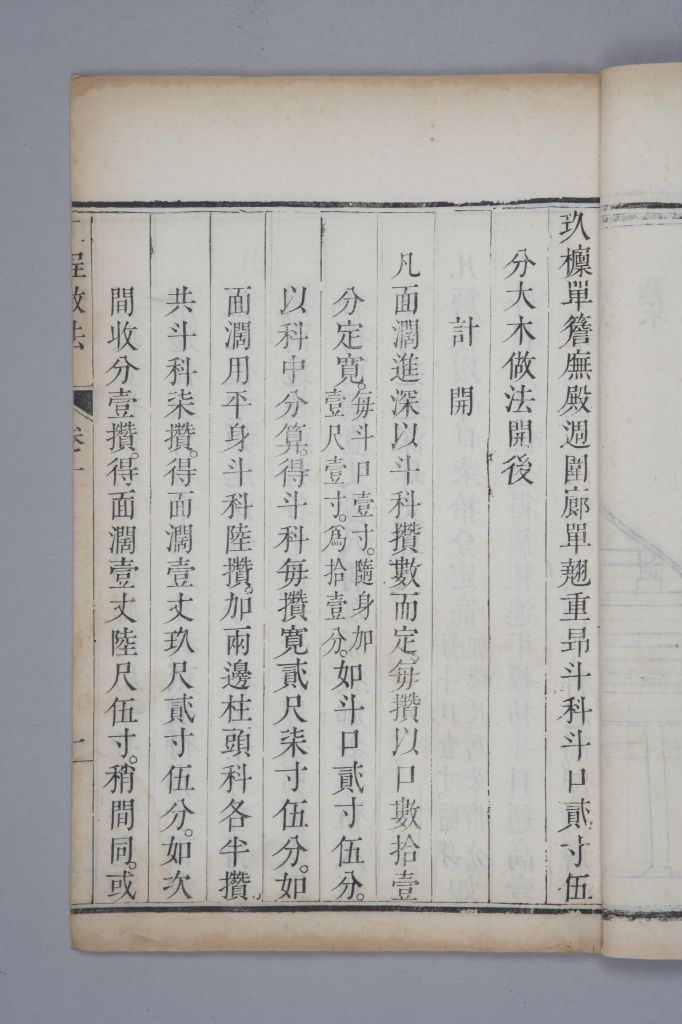 玖檩單簷廡殿週圍廊單翹重昂斗科斗口貳寸伍
分大木做法開後
計開
凡面濶進深以斗科攢數而定。每攢以口數拾壹
分定寬。每斗口壹寸。隨身加壹尺壹寸。為拾壹分。如斗口貳寸伍分。
以科中分算。得斗科每攢寬貳尺柒寸伍分。如
面濶用平身斗科陸攢。加兩邊柱頭科各半攢。
共斗科柒攢。得面濶壹丈玖尺貳寸伍分。如次
間收分壹攢。得面濶壹丈陸尺伍寸。稍間同。或
程做法
卷一